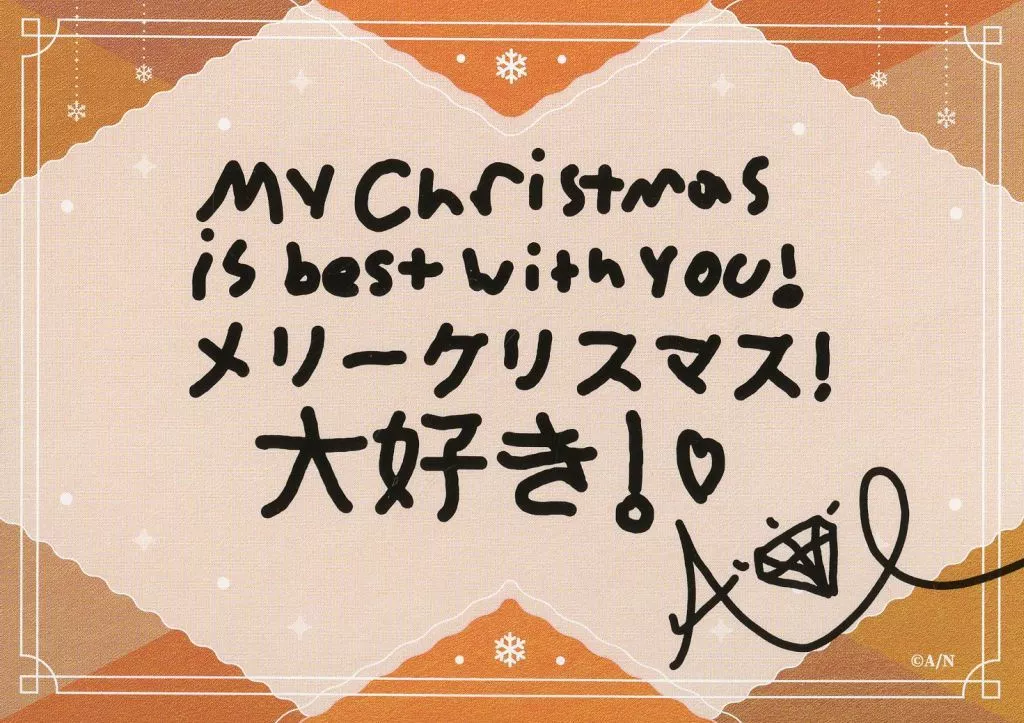 My Christmas
is best with you!
メリークリスマス!
大好き!♡
©A/N